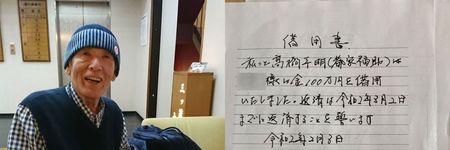 借用書
私こと高橋子明(春家補助)は
様に金100万円を借用
いたしました。返済は令和2年3月2日
までに返済することを誓います
令和2年2月3日